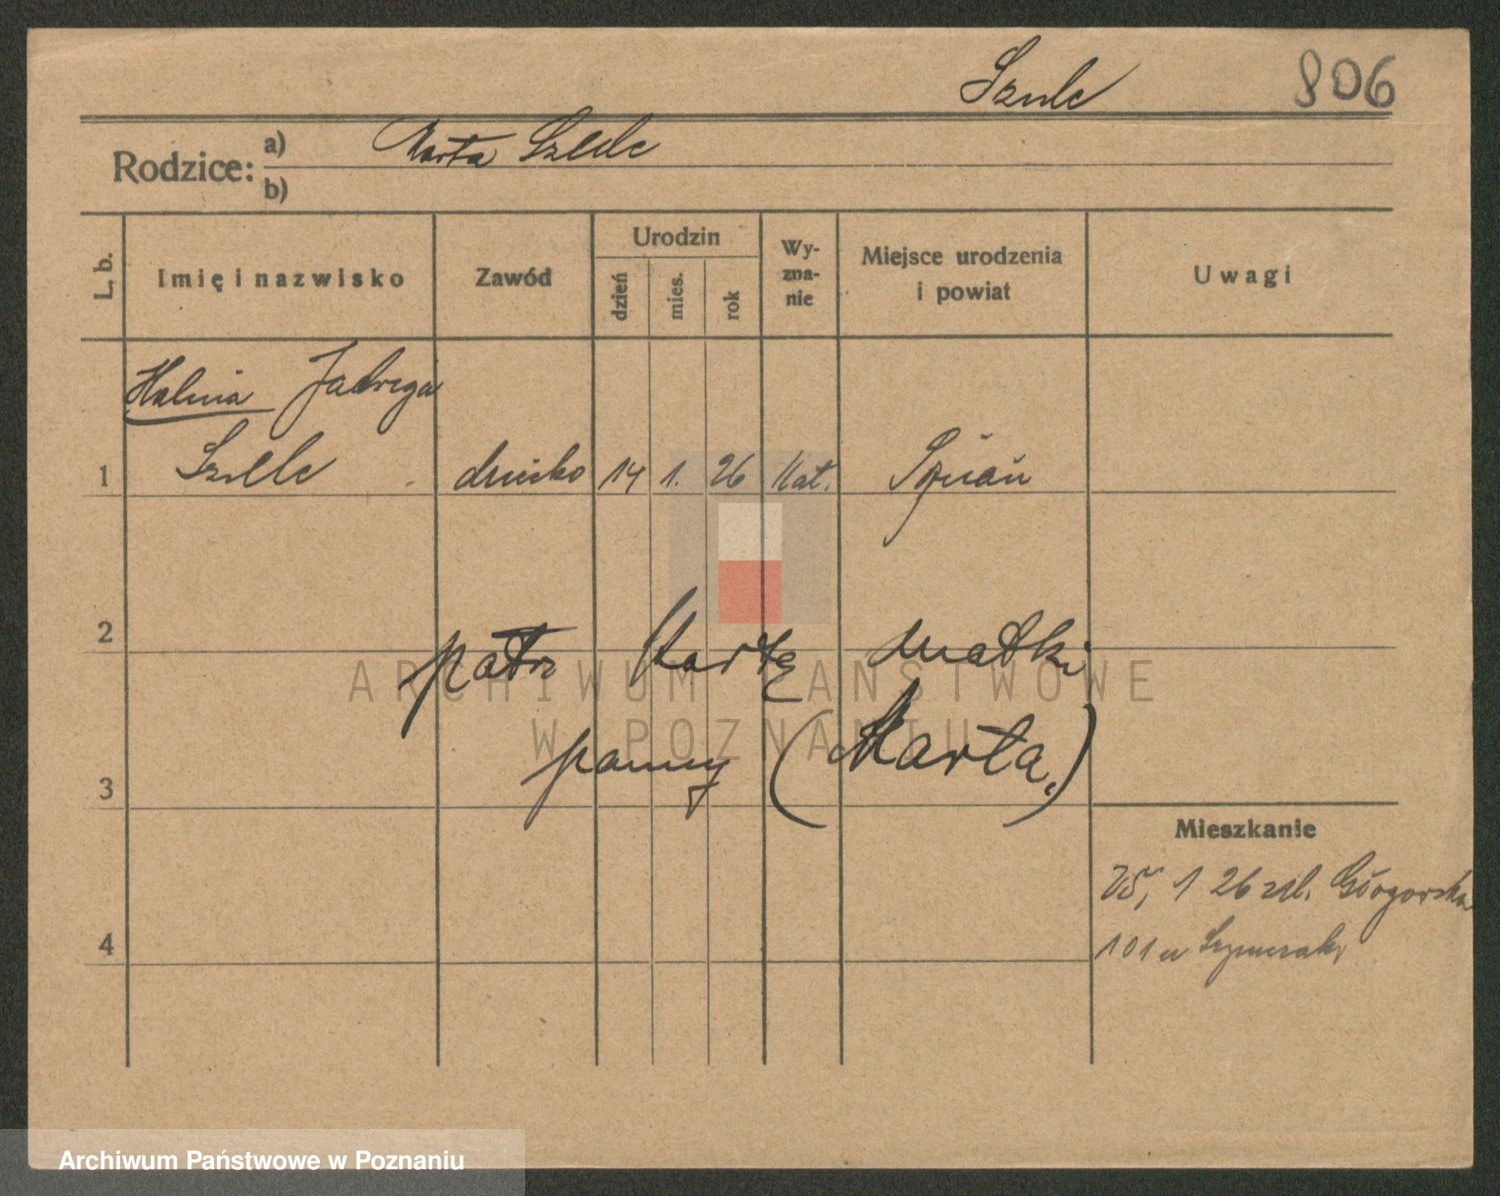 Szulc 806
Rodzice: a) Marta Szulc
b)
L. b. Imię i nazwisko Zawód Urodzin dzień mies. rok Wy-zna-nie Miejsce urodzenia i powiat Uwagi
Halina Jadwiga
1 Szulc dziecko 14 1. 26 kat.
2 patrz kartę matki
panny (Marta.)
3
Mieszkanie
1 26 Górgorska
4 101 u
ARCHIWUM PAŃSTWOWE
W POZNANIU
Archiwum Państwowe w Poznaniu